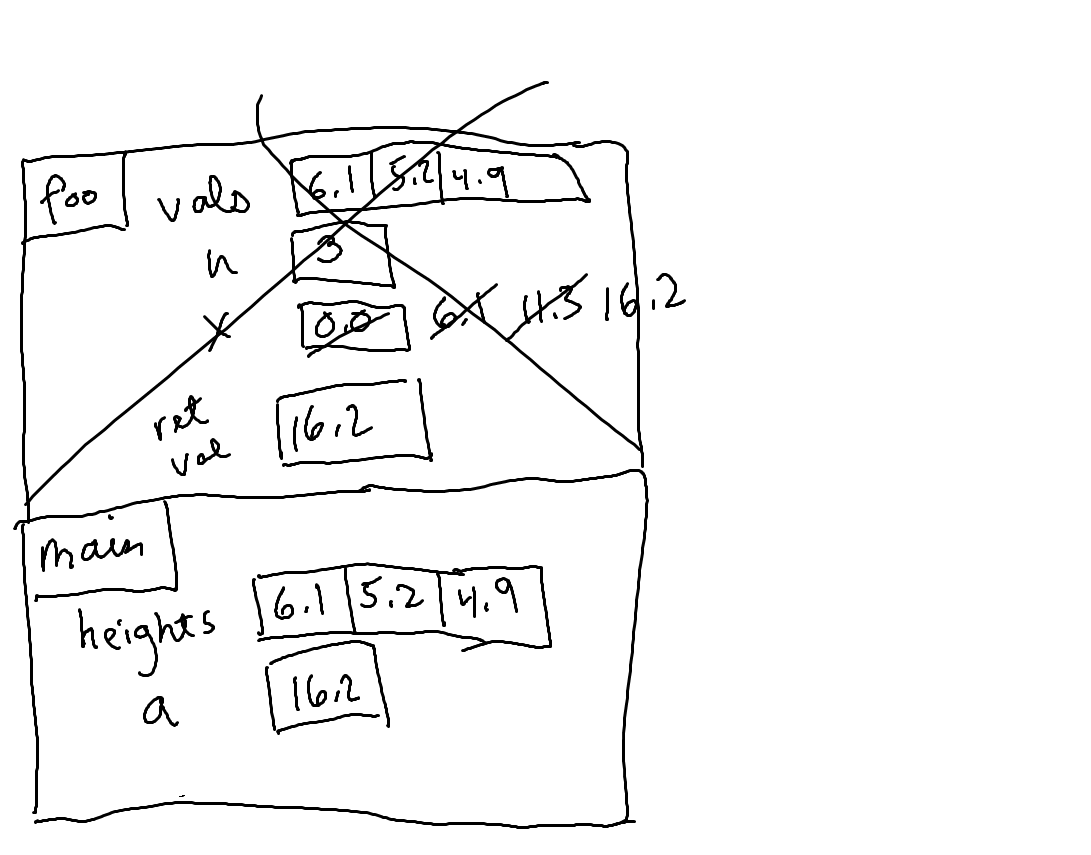 foo vals 6.1 5.2 4.9
n 3
x 0.0 6.1 11.3 16.2
ret
val 16.2
main
heights 6.1 5.2 4.9
a 16.2